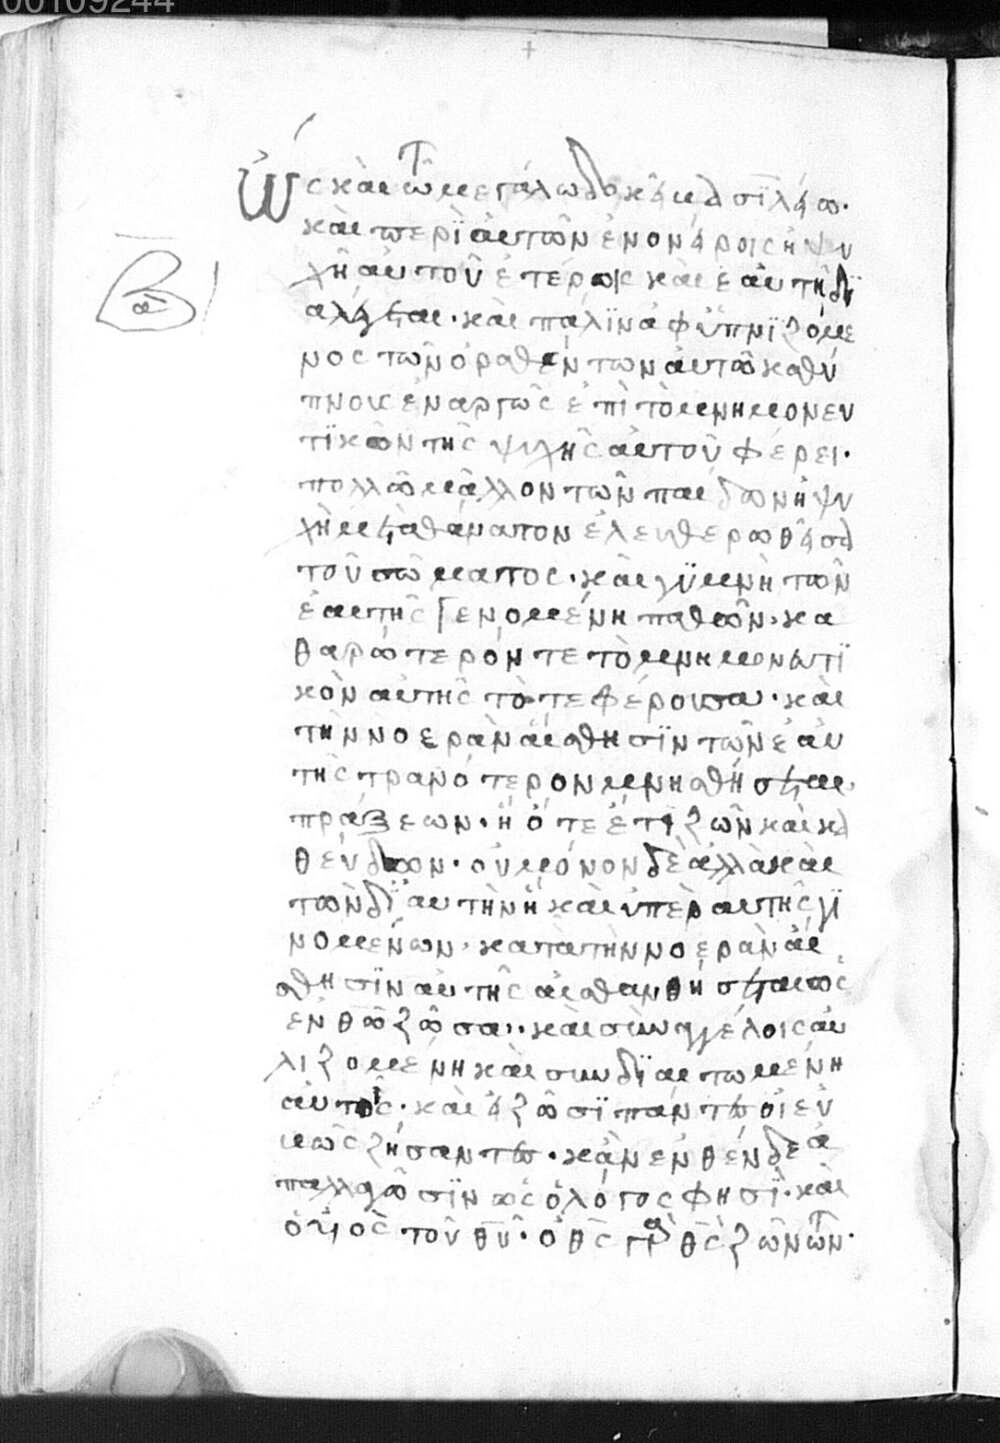 00109244
Ὡς καὶ τῶ μεγάλω δοκεῖ βασιλείω.
καὶ περὶ αὐτῶν ἐν ὀνείροις ἡ ψυ
χὴ αὐτοῦ ἑτέροις καὶ ἑαυτῇ δι
αλέγεται. καὶ πάλιν ἀφυπνιζόμε
νος τῶν ὁραθέντων αὐτῶ καθ' ὕ
πνοις ἐναργῶς ἐπὶ τὸ μνημονευ
τικὸν τῆς ψυχῆς αὐτοῦ φέρει.
πολλῶ μᾶλλον τῶν παίδων ἡ ψυ
χὴ μετὰ θάνατον ἐλευθερωθεῖσα
τοῦ σώματος. καὶ γυμνὴ τῶν
ἑαυτῆς γενομένη παθῶν. κα
θαρώτερόν τε τὸ μνημονευτι
κὸν αὐτῆς τότε φέρουσα. καὶ
τὴν νοερὰν αἴσθησιν τῶν ἑαυ
τῆς τρανότερον μνησθήσεται
πράξεων. ἢ ὅτε ἔτι ζῶν καὶ κα
θεύδων. οὐ μόνον δὲ ἀλλὰ καὶ
τῶν δι' αὐτὴν ἢ καὶ ὑπὲρ αὐτῆς γι
νομένων. κατὰ τὴν νοερὰν αἴ
σθησιν αὐτῆς αἰσθανθήσεται ὡς
ἐν θῶ ζῶσα. καὶ σὺν ἀγγέλοις αὐ
λιζομένη καὶ συνδιαιτωμένη
αὐτοῖς. καὶ εἰ ζῶσι πάντες οἱ ἐν
κῶ ζήσαντες. κἂν ἐνθένδε ἀ
παλλαγῶσιν ὡς ὁ λόγος φησί. καὶ
ὁ υἱὸς τοῦ θυ. ὁ θς γὰρ θς ζώντων.